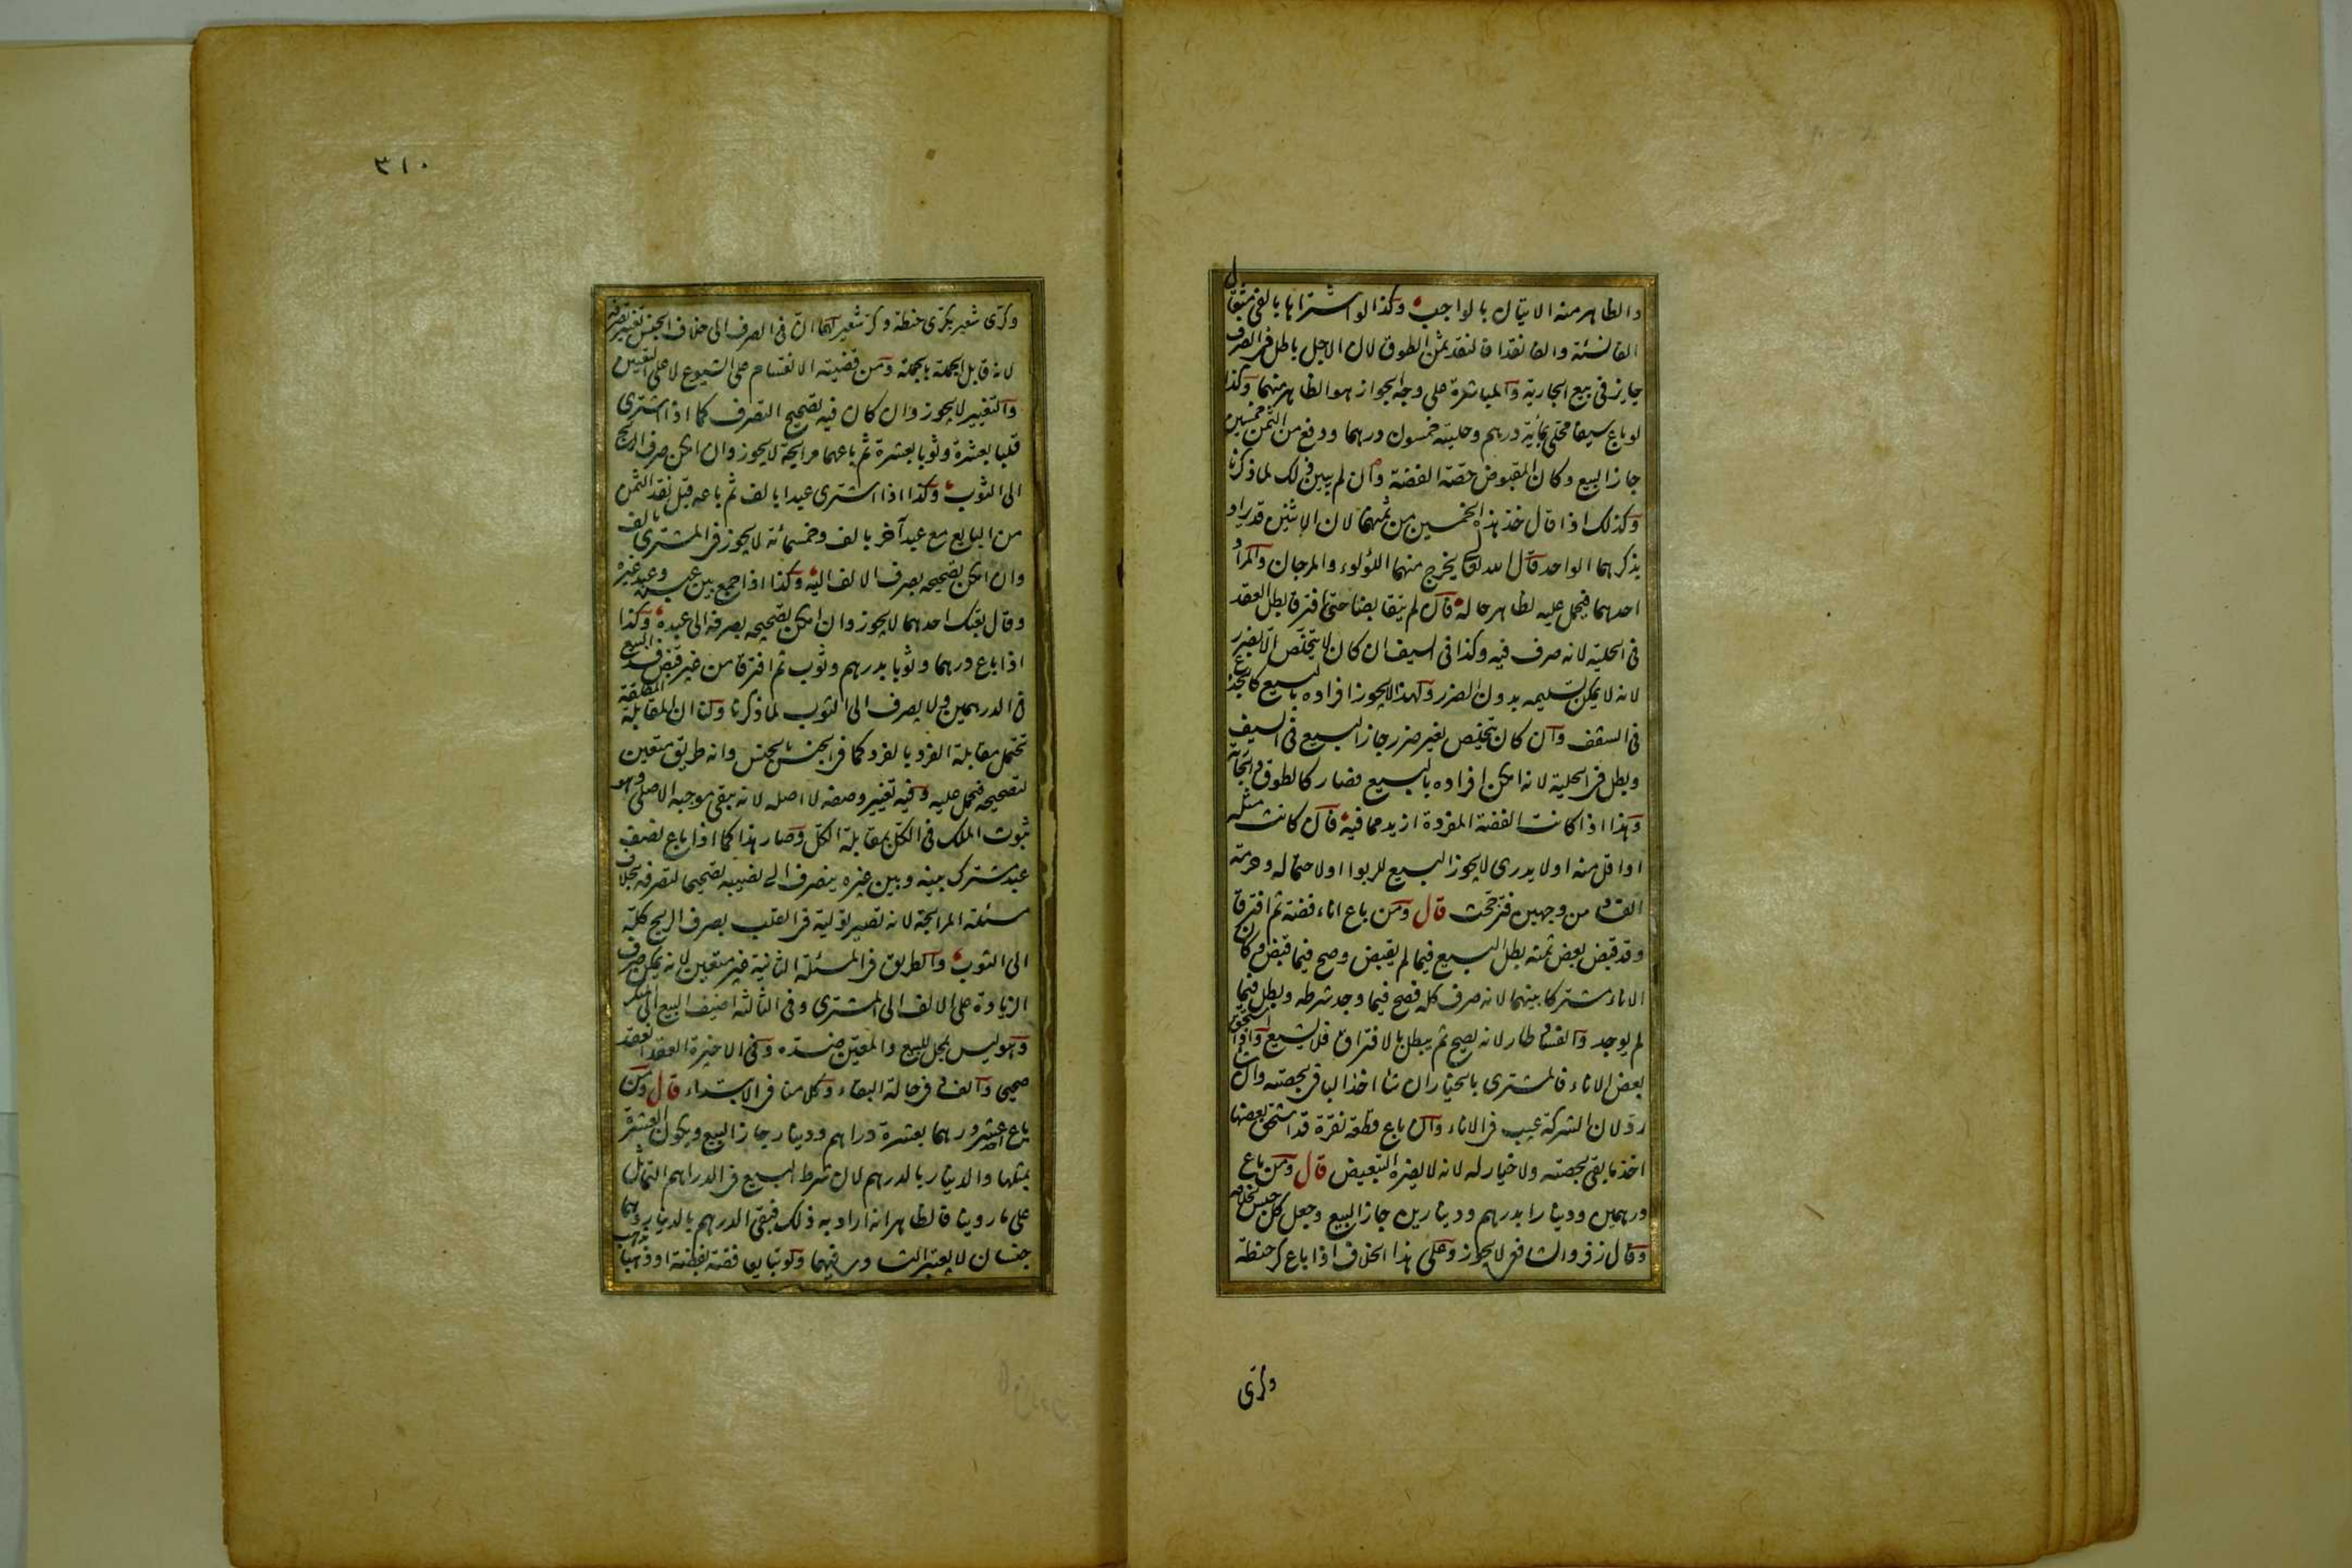 والظاهر منه الاتيان بالواجب وكذا لو اشتراها بالفي مثقال
الف نسئة والف نقدا فالنقد ثمن الطوق لان الاجل باطل في الصرف
جايز في بيع الجارية والمباشرة على وجه الجواز هو الظاهر منهما وكذا
لو باع سيفا محلى بمائة درهم وحليته خمسون درهما ودفع من الثمن خمسين
جاز البيع وكان المقبوض حصة الفضة وان لم يبين ذلك لما ذكرنا
وكذلك اذا قال خذ هذه الخمسين من ثمنهما لان الاثنين قد يراد
بذكرهما الواحد قال الله تعالى يخرج منهما اللؤلوء والمرجان والمراد
احدهما فيحمل عليه لظاهر حاله فان لم يتقابضا حتى افترقا بطل العقد
في الحلية لانه صرف فيه وكذا في السيف ان كان لا يتخلص الا بضرر
لانه لا يمكن تسليمه بدون الضرر ولهذا لا يجوز افراده بالبيع كالجذع
في السقف وان كان يتخلص بغير ضرر جاز البيع في السيف
وبطل في الحلية لانه امكن افراده بالبيع فصار كالطوق والجارية
وهذا اذا كانت الفضة المفردة ازيد مما فيه فان كانت مثله
او اقل منه او لا يدرى لا يجوز البيع للربوا او لاحتماله وجهة
الفساد من وجهين فترجحت قال ومن باع اناء فضة ثم افترقا
وقد قبض بعض ثمنه بطل البيع فيما لم يقبض وصح فيما قبض وكان
الاناء مشتركا بينهما لانه صرف كله فصح فيما وجد شرطه وبطل فيما
لم يوجد والفساد طار لانه يصح ثم يبطل بالافتراق فلا يشيع ولو استحق
بعض الاناء فالمشترى بالخيار ان شاء اخذ الباقي بحصته وان شاء
رد لان الشركة عيب في الاناء وان باع قطعة نقرة ثم استحق بعضها
اخذ ما بقي بحصته ولا خيار له لانه لا يضره التبعيض قال ومن باع
درهمين ودينارا بدرهم ودينارين جاز البيع وجعل كل جنس بخلافه
وقال زفر والشافعي لا يجوز وعلى هذا الخلاف اذا باع كر حنطة
وكرى
٣١٠
وكرى شعير بكرى حنطة وكر شعير لهما ان في الصرف الى خلاف الجنس تغيير تصرفه
لانه قابل الجملة بالجملة ومن قضيته الانقسام على الشيوع لا على التعيين
والتغيير لا يجوز وان كان فيه تصحيح التصرف كما اذا اشترى
قلبا بعشرة وثوبا بعشرة ثم باعهما مرابحة لا يجوز وان امكن صرف الربح
الى الثوب وكذا اذا اشترى عبدا بالف ثم باعه قبل نقد الثمن
من البايع مع عبد آخر بالف وخمسمائة لا يجوز في المشترى بالف
وان امكن تصحيحه بصرف الالف اليه وكذا اذا جمع بين عبده وعبد غيره
وقال بعتك احدهما لا يجوز وان امكن تصحيحه بصرفه الى عبده وكذا
اذا باع درهما وثوبا بدرهم وثوب ثم افترقا من غير قبض فسد البيع
في الدرهمين ولا يصرف الى الثوب لما ذكرنا ولنا ان المقابلة المطلقة
تحتمل مقابلة الفرد بالفرد كما في الجنس بالجنس وانه طريق متعين
لتصحيحه فتحمل عليه وفيه تغيير وصفه لا اصله لانه يبقى موجبه الاصلي وهو
ثبوت الملك في الكل بمقابلة الكل وصار هذا كما اذا باع نصف
عبد مشترك بينه وبين غيره ينصرف الى نصيبه تصحيحا لتصرفه بخلاف
مسئلة المرابحة لانه تصير تولية في القلب بصرف الربح كله
الى الثوب والطريق في المسئلة الثانية غير متعين لانه يمكن صرف
الزيادة على الالف الى المشترى وفي الثالثة اضيف البيع الى المنكر
وهو ليس بمحل للبيع والمعين ضده وفي الاخيرة العقد انعقد
صحيحا والفساد في حالة البقاء وكلامنا في الابتداء قال ومن
باع احد عشر درهما بعشرة دراهم ودينار جاز البيع ويكون العشرة
بمثلها والدينار بالدرهم لان شرط البيع في الدراهم التماثل
على ما روينا فالظاهر انه اراد به ذلك فبقي الدرهم بالدينار وهما
جنسان لا يعتبر التساوي فيهما ولو تبايعا فضة بفضة او ذهبا بذهب